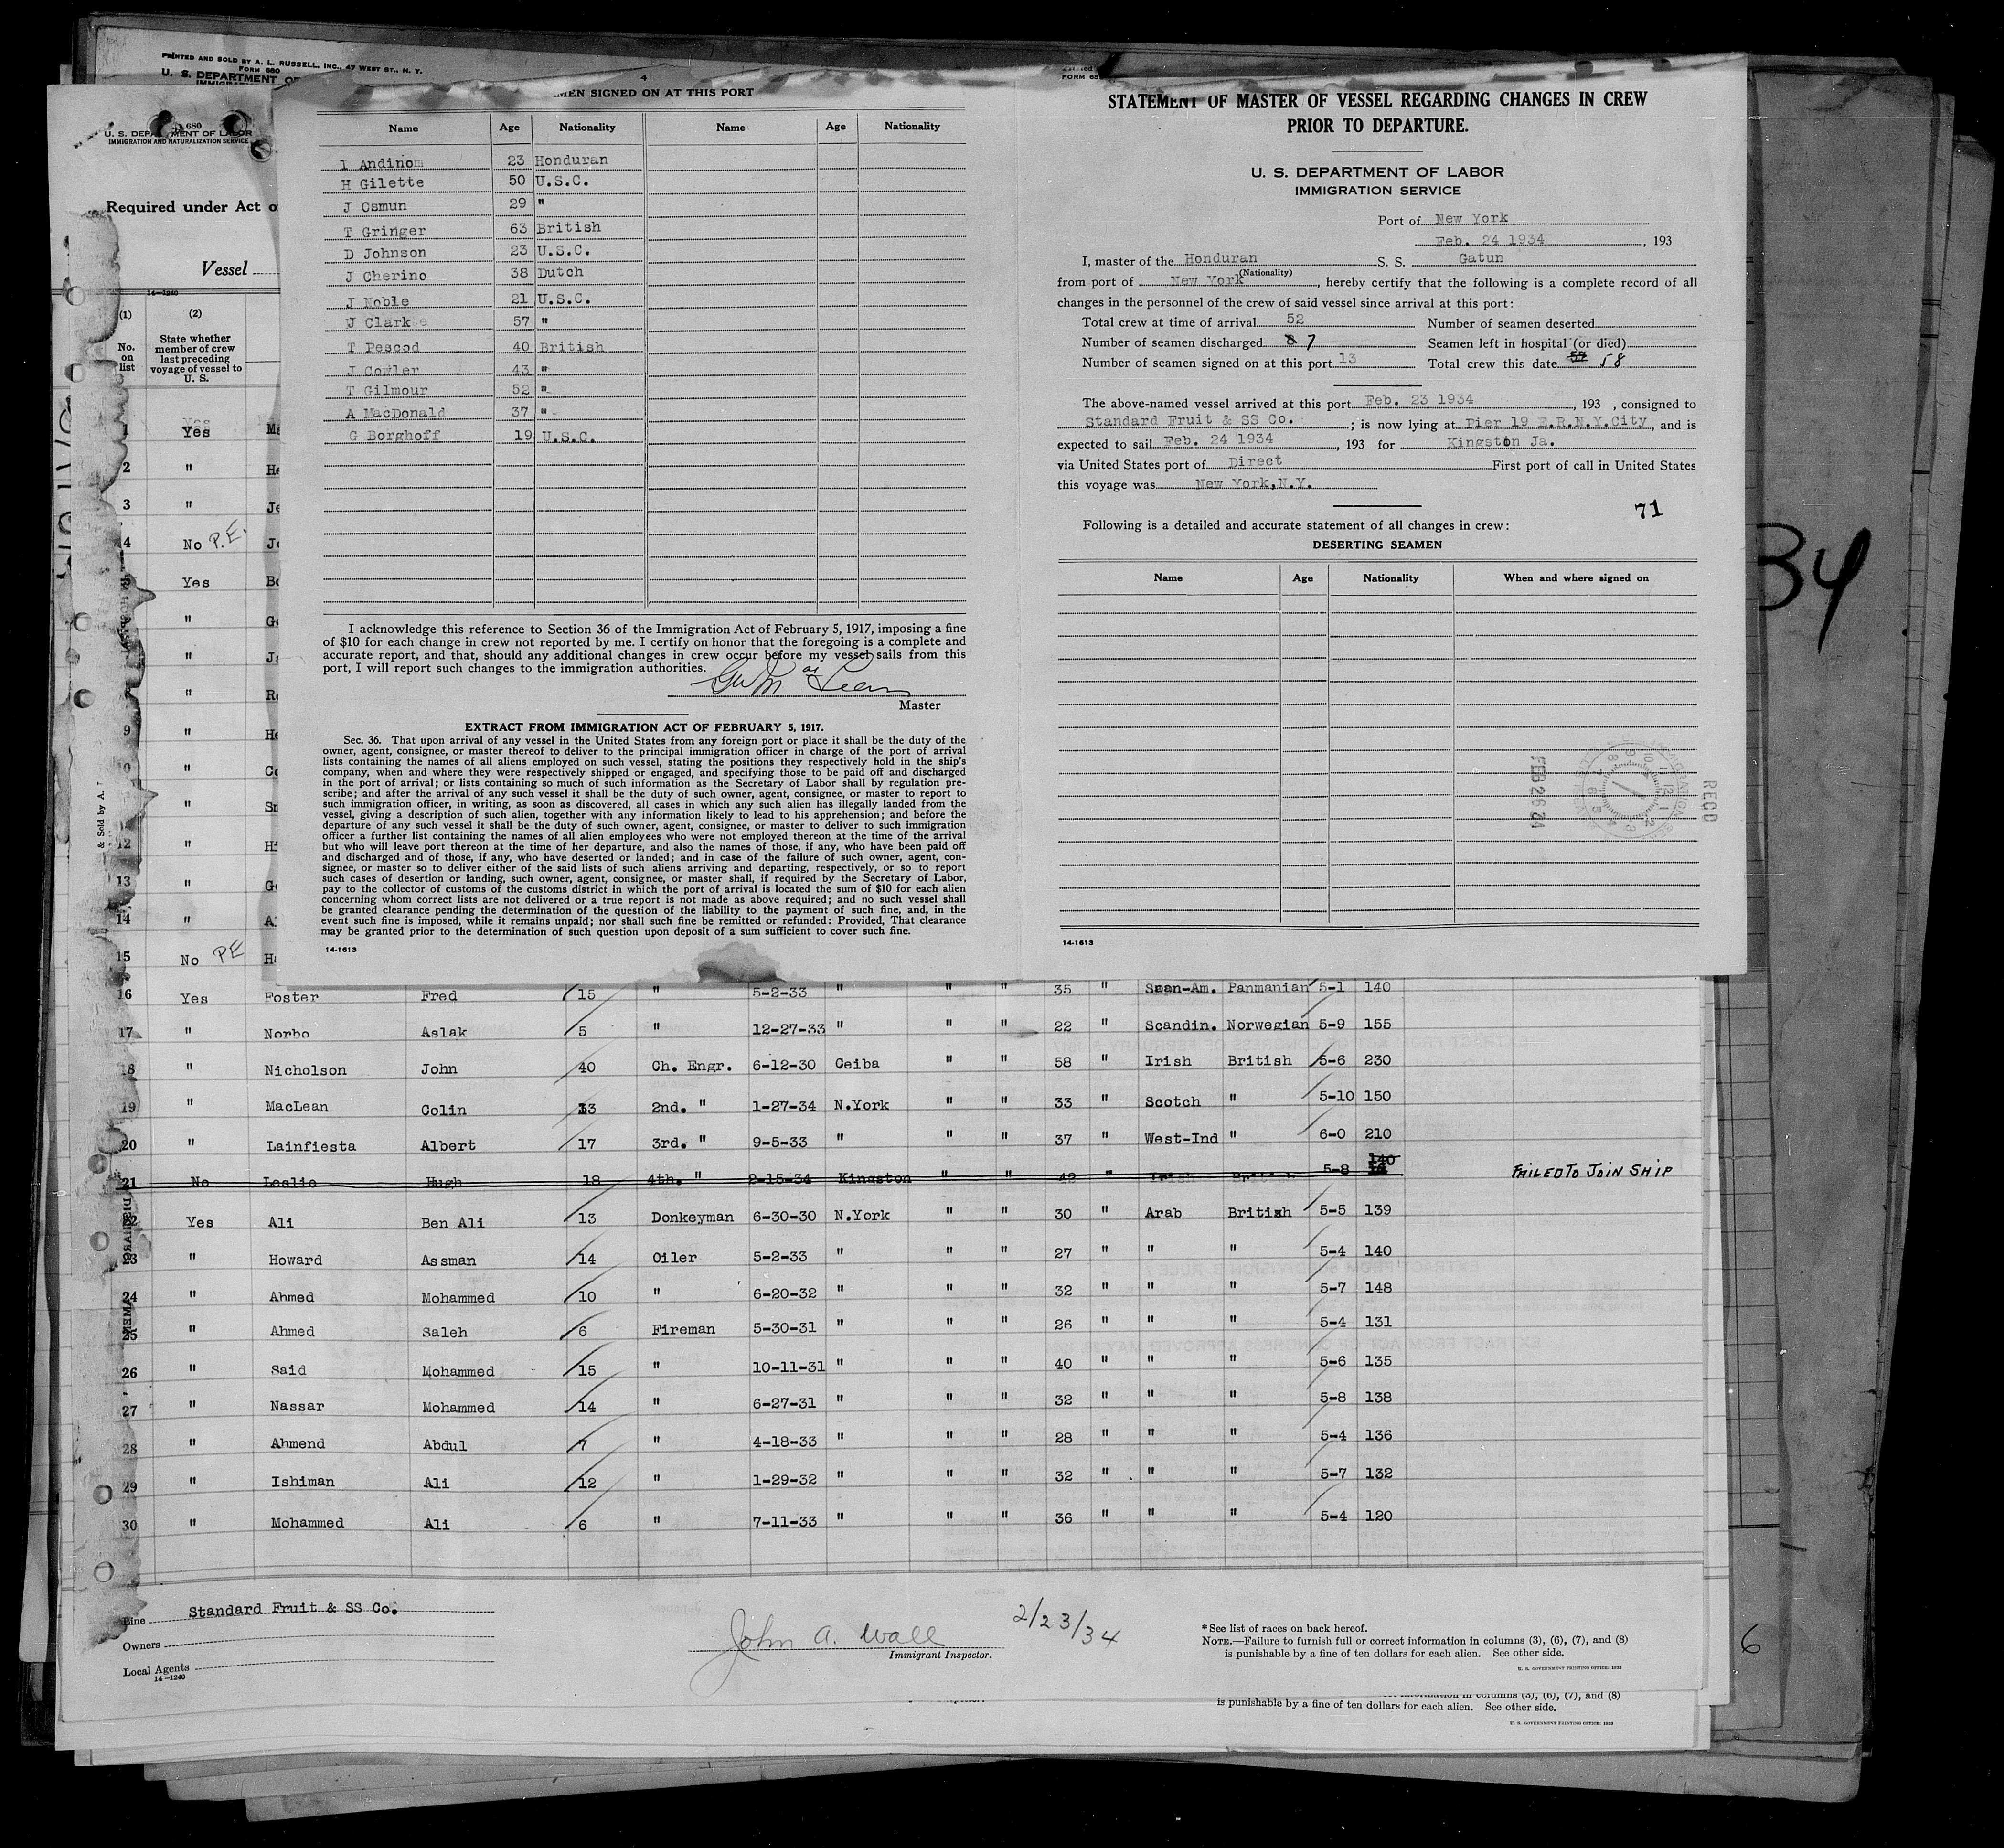 PRINTED AND SOLD BY A. L. RUSSELL, INC., 47 WEST ST., N. Y.
FORM 680
U. S. DEPARTMENT OF
680
U. S. DEPARTMENT OF LABOR
IMMIGRATION AND NATURALIZATION SERVICE
Required under Act o
Vessel
14-1240
(1) (2)
No. on list
State whether member of crew last preceding voyage of vessel to U. S.
1 Yes Ma
2 " He
3 " Je
4 No P.E. Jo
5 Yes Bo
" Ge
" Ja
" Re
9 " He
10 " Co
" Sm
12 " Hi
13 " Ge
14 " A
15 No PE Ha
4
MEN SIGNED ON AT THIS PORT
Name Age Nationality Name Age Nationality
I Andinom 23 Honduran
H Gilette 50 U.S.C.
J Osmun 29 "
T Gringer 63 British
D Johnson 23 U.S.C.
J Cherino 38 Dutch
J Noble 21 U.S.C.
J Clarke 57 "
T Pescod 40 British
J Cowler 43 "
T Gilmour 52 "
A MacDonald 37 "
G Borghoff 19 U.S.C.
I acknowledge this reference to Section 36 of the Immigration Act of February 5, 1917, imposing a fine
of $10 for each change in crew not reported by me. I certify on honor that the foregoing is a complete and
accurate report, and that, should any additional changes in crew occur before my vessel sails from this
port, I will report such changes to the immigration authorities.
Master
EXTRACT FROM IMMIGRATION ACT OF FEBRUARY 5, 1917.
Sec. 36. That upon arrival of any vessel in the United States from any foreign port or place it shall be the duty of the
owner, agent, consignee, or master thereof to deliver to the principal immigration officer in charge of the port of arrival
lists containing the names of all aliens employed on such vessel, stating the positions they respectively hold in the ship's
company, when and where they were respectively shipped or engaged, and specifying those to be paid off and discharged
in the port of arrival; or lists containing so much of such information as the Secretary of Labor shall by regulation pre-
scribe; and after the arrival of any such vessel it shall be the duty of such owner, agent, consignee, or master to report to
such immigration officer, in writing, as soon as discovered, all cases in which any such alien has illegally landed from the
vessel, giving a description of such alien, together with any information likely to lead to his apprehension; and before the
departure of any such vessel it shall be the duty of such owner, agent, consignee, or master to deliver to such immigration
officer a further list containing the names of all alien employees who were not employed thereon at the time of the arrival
but who will leave port thereon at the time of her departure, and also the names of those, if any, who have been paid off
and discharged and of those, if any, who have deserted or landed; and in case of the failure of such owner, agent, con-
signee, or master so to deliver either of the said lists of such aliens arriving and departing, respectively, or so to report
such cases of desertion or landing, such owner, agent, consignee, or master shall, if required by the Secretary of Labor,
pay to the collector of customs of the customs district in which the port of arrival is located the sum of $10 for each alien
concerning whom correct lists are not delivered or a true report is not made as above required; and no such vessel shall
be granted clearance pending the determination of the question of the liability to the payment of such fine, and, in the
event such fine is imposed, while it remains unpaid; nor shall such fine be remitted or refunded: Provided, That clearance
may be granted prior to the determination of such question upon deposit of a sum sufficient to cover such fine.
14-1613
STATEMENT OF MASTER OF VESSEL REGARDING CHANGES IN CREW
PRIOR TO DEPARTURE.
U. S. DEPARTMENT OF LABOR
IMMIGRATION SERVICE
Port of New York
Feb. 24 1934, 193
I, master of the Honduran S. S. Gatun
(Nationality)
from port of New York, hereby certify that the following is a complete record of all
changes in the personnel of the crew of said vessel since arrival at this port:
Total crew at time of arrival 52 Number of seamen deserted
Number of seamen discharged 8 7 Seamen left in hospital (or died)
Number of seamen signed on at this port 13 Total crew this date 57 58
The above-named vessel arrived at this port Feb. 23 1934, 193 , consigned to
Standard Fruit & SS Co. ; is now lying at Pier 19 E.R.N.Y.City, and is
expected to sail Feb. 24 1934, 193 for Kingston Ja.
via United States port of Direct First port of call in United States
this voyage was New York,N.Y.
71
Following is a detailed and accurate statement of all changes in crew:
DESERTING SEAMEN
Name Age Nationality When and where signed on
FEB 26 34
RECD
14-1613
34
16 Yes Foster Fred 15 " 5-2-33 " " " 35 " Span-Am. Panmanian 5-1 140
17 " Norbo Aslak 5 " 12-27-33 " " " 22 " Scandin. Norwegian 5-9 155
18 " Nicholson John 40 Ch. Engr. 6-12-30 Ceiba " " 58 " Irish British 5-6 230
19 " MacLean Colin 13 2nd. " 1-27-34 N.York " " 33 " Scotch " 5-10 150
20 " Lainfiesta Albert 17 3rd. " 9-5-33 " " " 37 " West-Ind " 6-0 210
21 No Leslie Hugh 18 4th. " 2-15-34 Kingston " " 42 " Irish British 5-8 140 FAILED TO JOIN SHIP
22 Yes Ali Ben Ali 13 Donkeyman 6-30-30 N.York " " 30 " Arab British 5-5 139
23 " Howard Assman 14 Oiler 5-2-33 " " " 27 " " " 5-4 140
24 " Ahmed Mohammed 10 " 6-20-32 " " " 32 " " " 5-7 148
25 " Ahmed Saleh 6 Fireman 5-30-31 " " " 26 " " " 5-4 131
26 " Said Mohammed 15 " 10-11-31 " " " 40 " " " 5-6 135
27 " Nassar Mohammed 14 " 6-27-31 " " " 32 " " " 5-8 138
28 " Ahmend Abdul 7 " 4-18-33 " " " 28 " " " 5-4 136
29 " Ishiman Ali 12 " 1-29-32 " " " 32 " " " 5-7 132
30 " Mohammed Ali 6 " 7-11-33 " " " 36 " " " 5-4 120
Line Standard Fruit & SS Co.
Owners
Local Agents
14-1240
John A. Wall 2/23/34
Immigrant Inspector.
*See list of races on back hereof.
NOTE.—Failure to furnish full or correct information in columns (3), (6), (7), and (8)
is punishable by a fine of ten dollars for each alien. See other side.
U. S. GOVERNMENT PRINTING OFFICE: 1932
information in columns (3), (6), (7), and (8)
is punishable by a fine of ten dollars for each alien. See other side.
U. S. GOVERNMENT PRINTING OFFICE: 1932
6